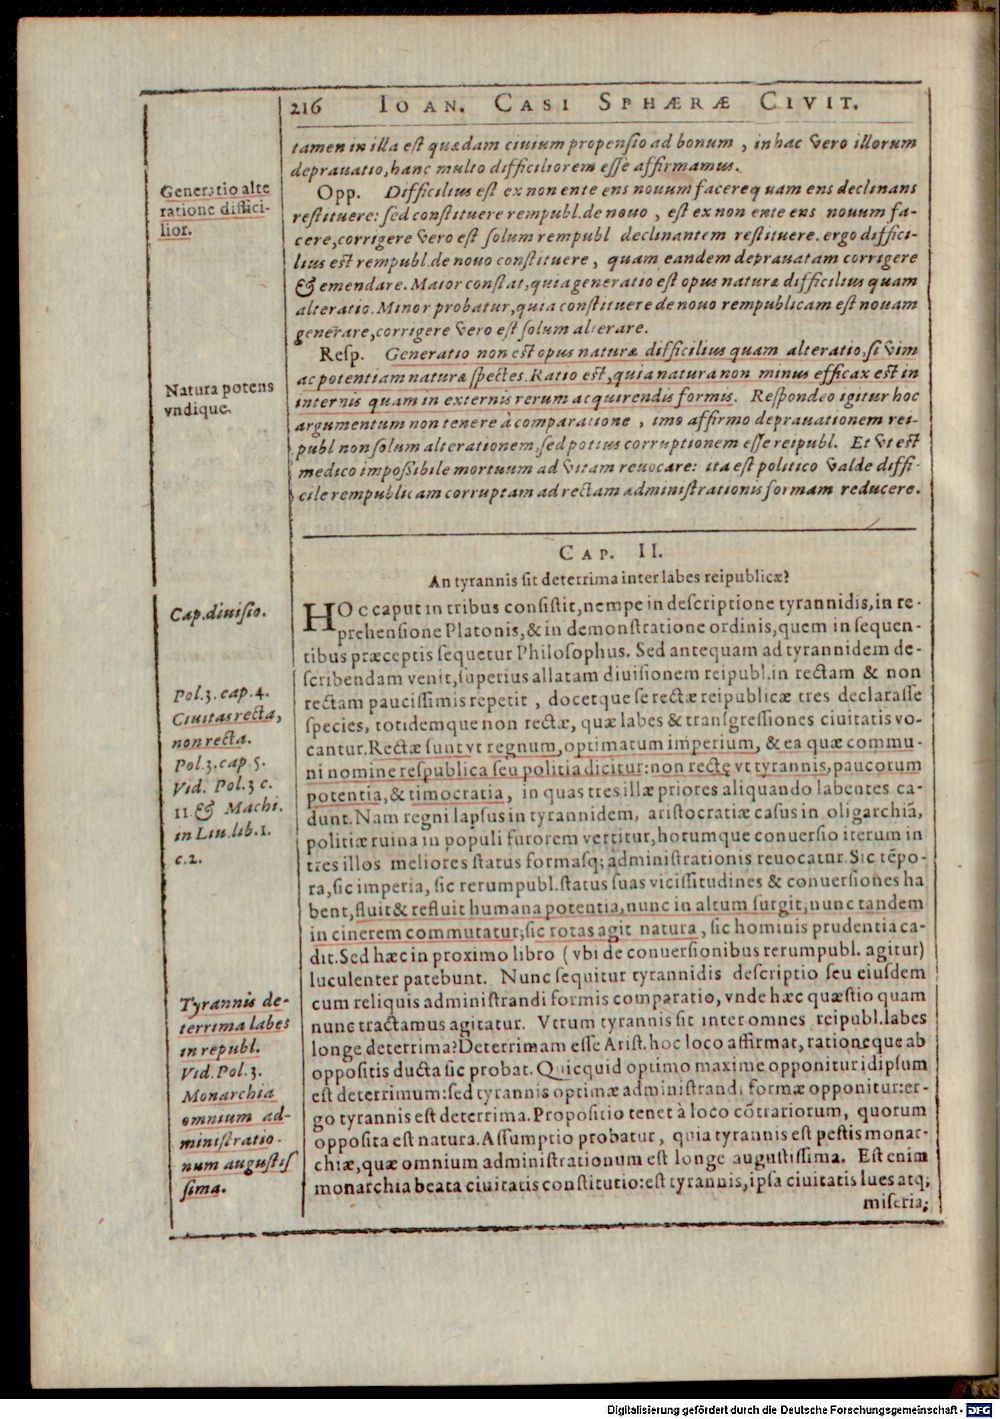 216 IOAN. CASI SPHÆRÆ CIVIT.
tamen in illa est quædam ciuium propensio ad bonum, in hac vero illorum
deprauatio, hanc multo difficiliorem esse affirmamus.
Generatio alte
ratione diffici-
lior.
Opp. Difficilius est ex non ente ens nouum facere quam ens declinans
restituere: sed constituere rempubl. de nouo, est ex non ente ens nouum fa-
cere, corrigere vero est solum rempubl declinantem restituere. ergo diffici-
lius est rempubl. de nouo constituere, quam eandem deprauatam corrigere
& emendare. Maior constat, quia generatio est opus naturæ difficilius quam
alteratio. Minor probatur, quia constituere de nouo rempublicam est nouam
generare, corrigere vero est solum alterare.
Natura potens
vndique.
Resp. Generatio non est opus naturæ difficilius quam alteratio, si vim
ac potentiam naturæ spectes. Ratio est, quia natura non minus efficax est in
internis quam in externis rerum acquirendis formis. Respondeo igitur hoc
argumentum non tenere à comparatione, imo affirmo deprauationem rei-
publ non solum alterationem, sed potius corruptionem esse reipubl. Et vt est
medico impossibile mortuum ad vitam reuocare: ita est politico valde diffi-
cile rempublicam corruptam ad rectam administrationis formam reducere.
CAP. II.
An tyrannis sit deterrima inter labes reipublicæ?
Cap. diuisio.
HOc caput in tribus consistit, nempe in descriptione tyrannidis, in re-
prehensione Platonis, & in demonstratione ordinis, quem in sequen-
tibus præceptis sequetur Philosophus. Sed antequam ad tyrannidem de-
scribendam venit, superius allatam diuisionem reipubl. in rectam & non
rectam paucissimis repetit, docetque se rectæ reipublicæ tres declarasse
species, totidemque non rectæ, quæ labes & transgressiones ciuitatis vo-
cantur. Rectæ sunt vt regnum, optimatum imperium, & ea quæ commu-
ni nomine respublica seu politia dicitur: non rectę vt tyrannis, paucorum
potentia, & timocratia, in quas tres illæ priores aliquando labentes ca-
dunt. Nam regni lapsus in tyrannidem, aristocratiæ casus in oligarchiã,
politiæ ruina in populi furorem vertitur, horumque conuersio iterum in
tres illos meliores status formasq; administrationis reuocatur. Sic tẽpo-
ra, sic imperia, sic rerumpubl. status suas vicissitudines & conuersiones ha
bent, fluit & refluit humana potentia, nunc in altum surgit, nunc tandem
in cinerem commutatur; sic rotas agit natura, sic hominis prudentia ca-
dit. Sed hæc in proximo libro (vbi de conuersionibus rerumpubl. agitur)
luculenter patebunt. Nunc sequitur tyrannidis descriptio seu eiusdem
cum reliquis administrandi formis comparatio, vnde hæc quæstio quam
nunc tractamus agitatur. Vtrum tyrannis sit inter omnes reipubl. labes
longe deterrima? Deterrimam esse Arist. hoc loco affirmat, rationeque ab
oppositis ducta sic probat. Quicquid optimo maxime opponitur id ipsum
est deterrimum: sed tyrannis optimæ administrandi formæ opponitur: er-
go tyrannis est deterrima. Propositio tenet à loco cõtrariorum, quorum
opposita est natura. Assumptio probatur, quia tyrannis est pestis monar-
chiæ, quæ omnium administrationum est longe augustissima. Est enim
monarchia beata ciuitatis constitutio: est tyrannis, ipsa ciuitatis lues atq;
miseria;
Pol. 3. cap. 4.
Ciuitas recta,
non recta.
Pol. 3. cap. 5.
Vid. Pol. 3 c.
11. & Machi.
in Liu. lib. 1.
c. 2.
Tyrannis de-
terrima labes
in republ.
Vid. Pol. 3.
Monarchia
omnium ad-
ministratio-
num augustis
sima.
Digitalisierung gefördert durch die Deutsche Forschungsgemeinschaft - DFG